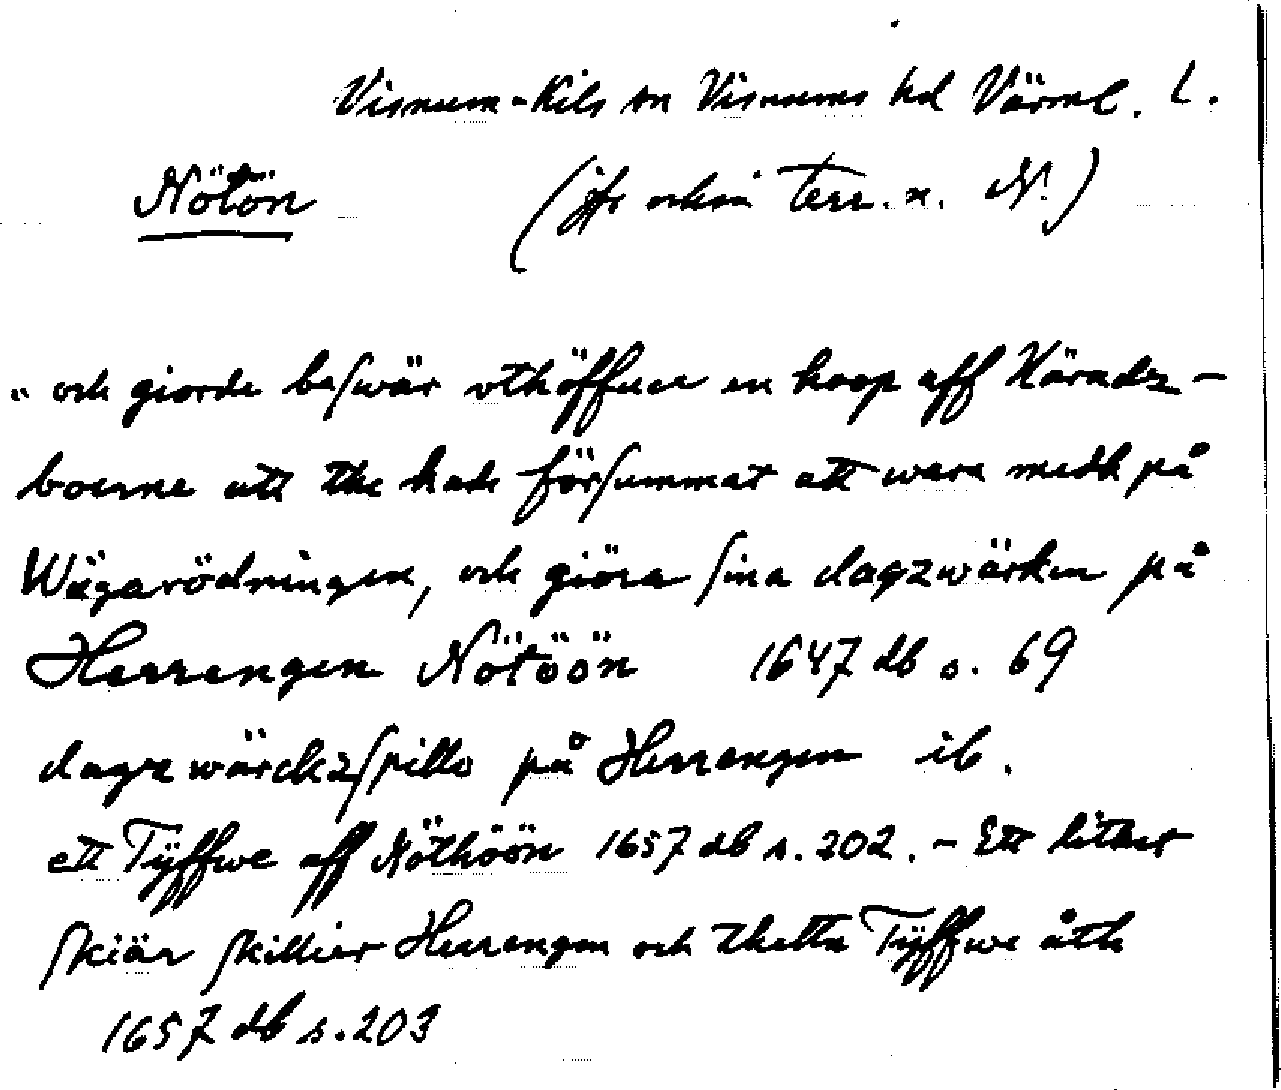 Visnum-Kils sn Visnums hd Värml. L.
Nötön (jfr också terr.n. N.)
" och giorde beswär vthöffuer en hoop aff Häradz-
boerne att the hade försummat att wara medh på
Wägarödningen, och giöra sina dagzwärken på
Herrengen Nötöön 1647 db s. 69
dagzwärckzspille på Herrengen ib.
ett Tÿffwe aff Nöthöön 1657 db s. 202. - Ett lithet
skiär skillier Herrengen och thetta Tÿffwe åth
1657 db s. 203